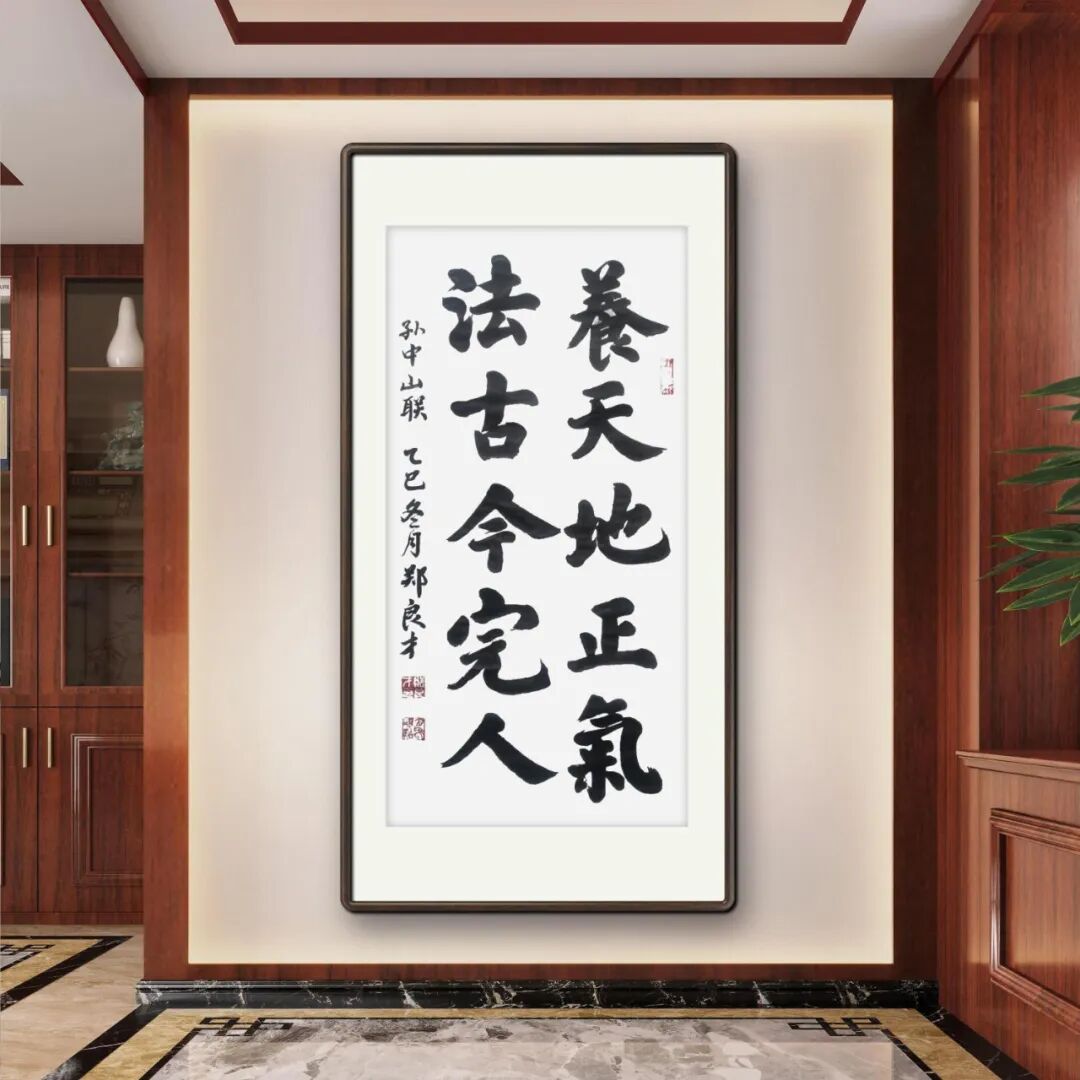 養天地正氣
法古今完人
孙中山联 乙巳冬月郑良才